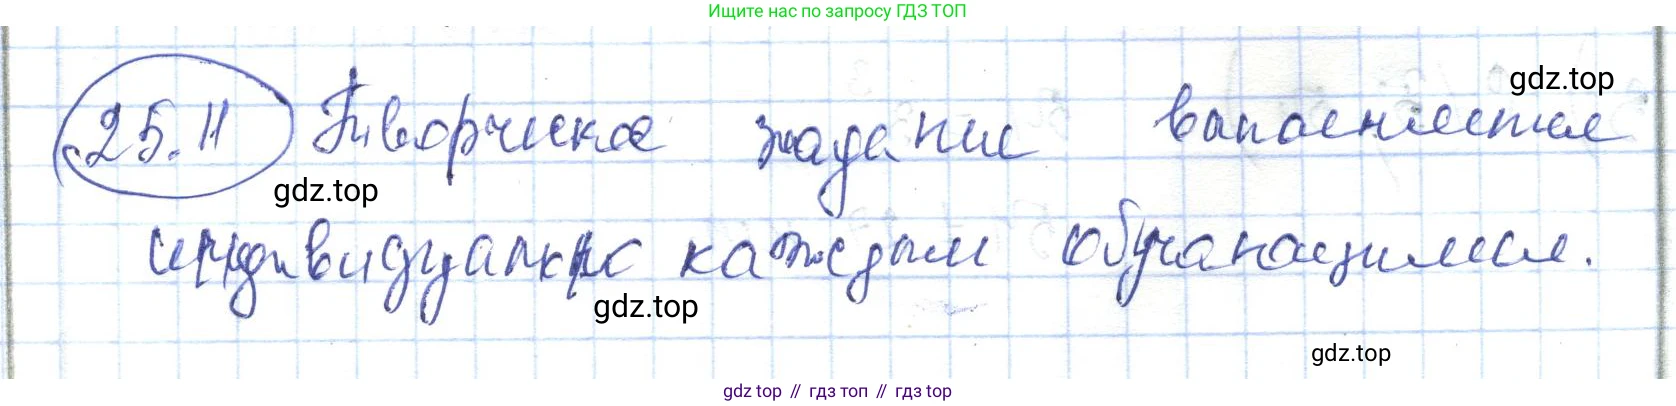 Ищите нас по запросу ГДЗ ТОП
gdz.top
25.11 Творческое задание выполняется
gdz.top
индивидуально каждым обучающимся.
gdz.top
gdz.top
gdz top // гдз топ // гдз top